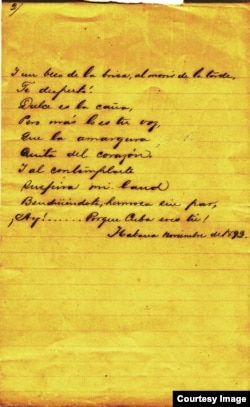 2/
I un beso de la brisa, al morir de la tarde,
Te despertó!
Dulce es la caña,
Pero más lo es tu voz,
Que la amargura
Quita del corazón.
I al contemplarte
Suspira mi laud
Bendiciéndote, hermosa sin par,
¡Ay!...... Porque Cuba eres tu!
Habana Noviembre del 1892.
Courtesy Image